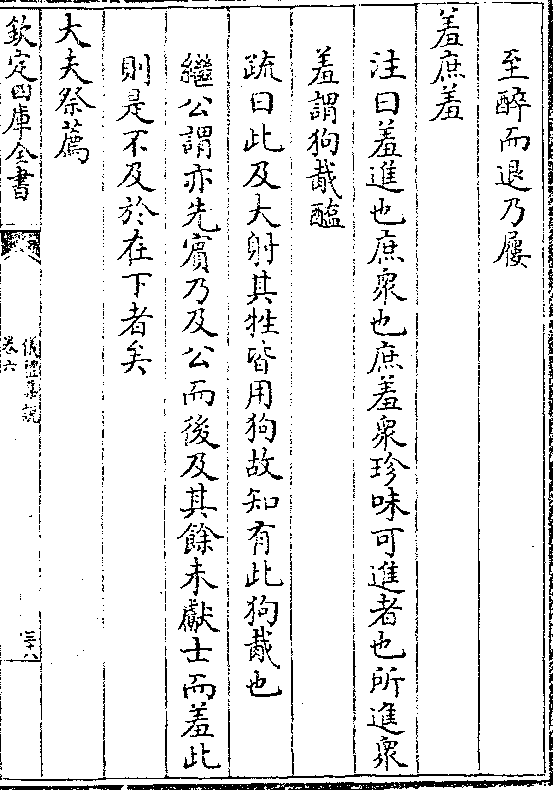 至醉而退乃屨
羞庶羞
注曰羞進也庶衆也庶羞衆珍味可進者也所進衆
羞謂狗胾醢
疏曰此及大射其牲皆用狗故知有此狗胾也
繼公謂亦先賓乃及公而後及其餘未獻士而羞此
則是不及於在下者矣
大夫祭薦
欽定四庫全書
儀禮集說
卷六
三十八